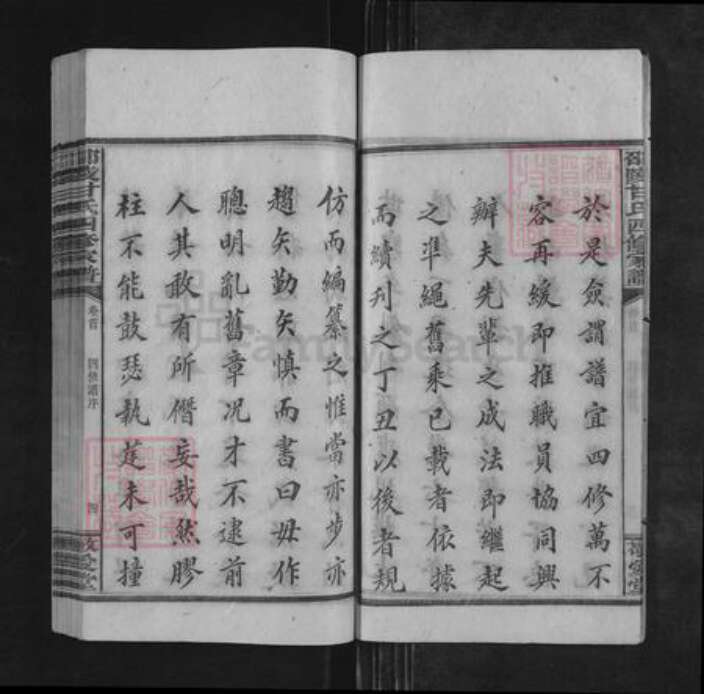 於是僉謂譜宜四修萬不
容再緩即推職員協同興
辦夫先輩之成法即繼起
之準繩舊乘已載者依據
而續刋之丁丑以後者規
仿而編纂之惟當亦步亦
趨矢勤矢慎而書曰毋作
聰明亂舊章况才不逮前
人其敢有所僭妄哉然膠
柱不能鼓瑟執莛未可撞
邵陵甘氏四修家譜
卷首
四修譜序
四
FamilySearch